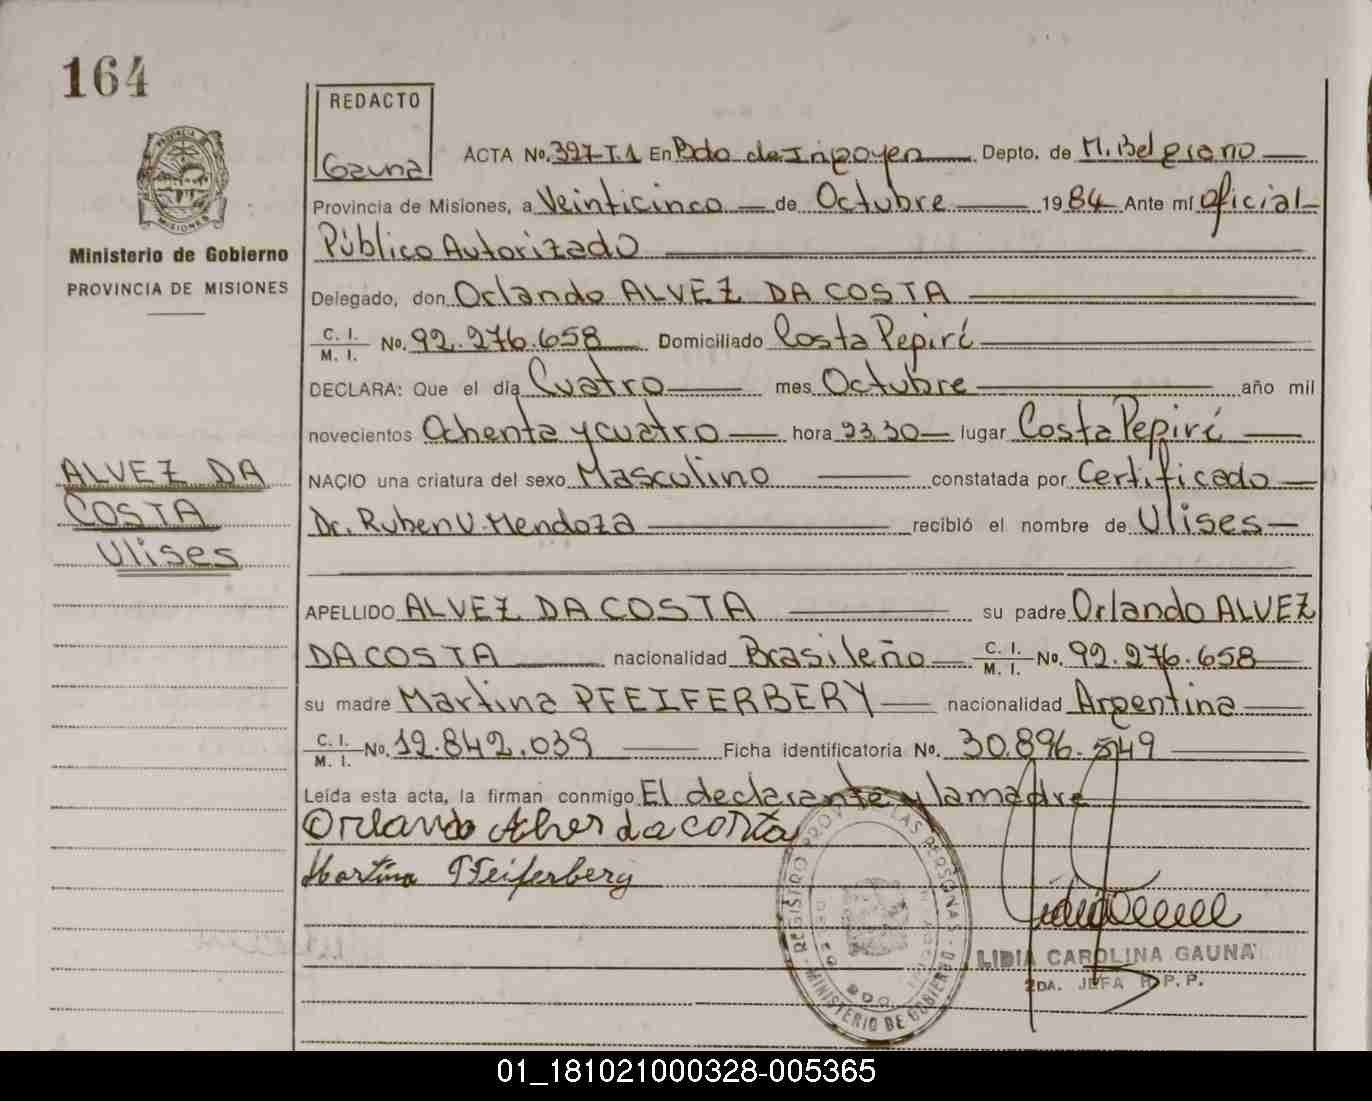 164
REDACTO
Gauna
ACTA No. 397-T.1 En Bdo de Irigoyen Depto. de M. Belgrano
Provincia de Misiones, a Veinticinco de Octubre 1984 Ante mí Oficial
Público Autorizado
Ministerio de Gobierno
PROVINCIA DE MISIONES
Delegado, don Orlando ALVEZ DA COSTA
C. I.
M. I. No. 92.276.658 Domiciliado Costa Pepirí
DECLARA: Que el día Cuatro mes Octubre año mil
novecientos Ochenta y cuatro hora 23.30 lugar Costa Pepirí
ALVEZ DA
COSTA
Ulises
NACIO una criatura del sexo Masculino constatada por Certificado
Dr. Ruben V. Mendoza recibió el nombre de Ulises
APELLIDO ALVEZ DA COSTA su padre Orlando ALVEZ
DA COSTA nacionalidad Brasileño C. I. M. I. No. 92.276.658
su madre Martina PFEIFERBERY nacionalidad Argentina
C. I.
M. I. No. 12.842.039 Ficha identificatoria No. 30.896.549
Leída esta acta, la firman conmigo El declarante y la madre
Orlando Alves da costa
Martina Pfeiferberg
REGISTRO PROV. DE LAS PERSONAS
MINISTERIO DE GOBIERNO
LIDIA CAROLINA GAUNA
2DA. JEFA R.P.P.
01_181021000328-005365